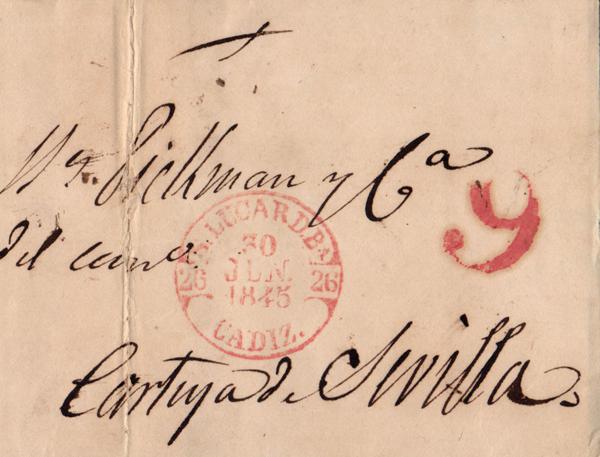 Pickman y Cª
9
del com°
S. LUCAR DE Bª
30
JUN.
1845
26 26
CADIZ.
Cartuja de Sevilla